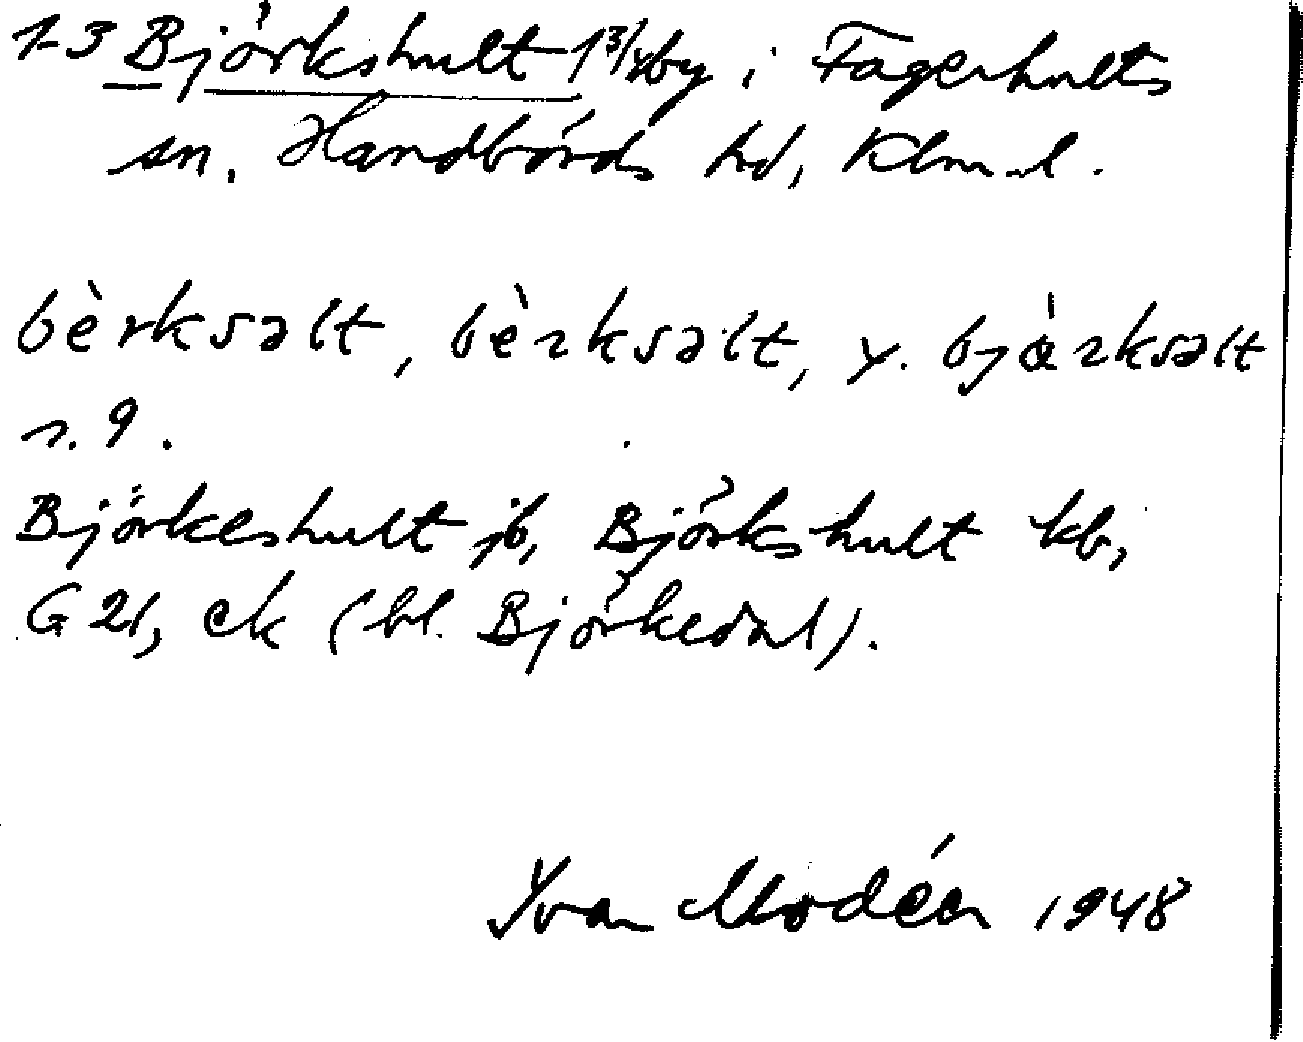 1-3 Björkshult 1 3/4 by i Fagerhults
sn. Handbörds hd, Klm. l.
bèrksəlt, bèrksəlt, y. bjàrksəlt
r. 9.
Björkeshult jb, Björkshult kb,
G 21, ek (bl. Björkedal).
Yvan Modéer 1948